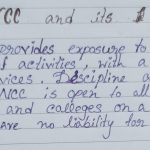 NCC and its
provides exposure to
f activities, with a
vices. Descipline a
NCC is open to all
and calleges on a
are no liability for